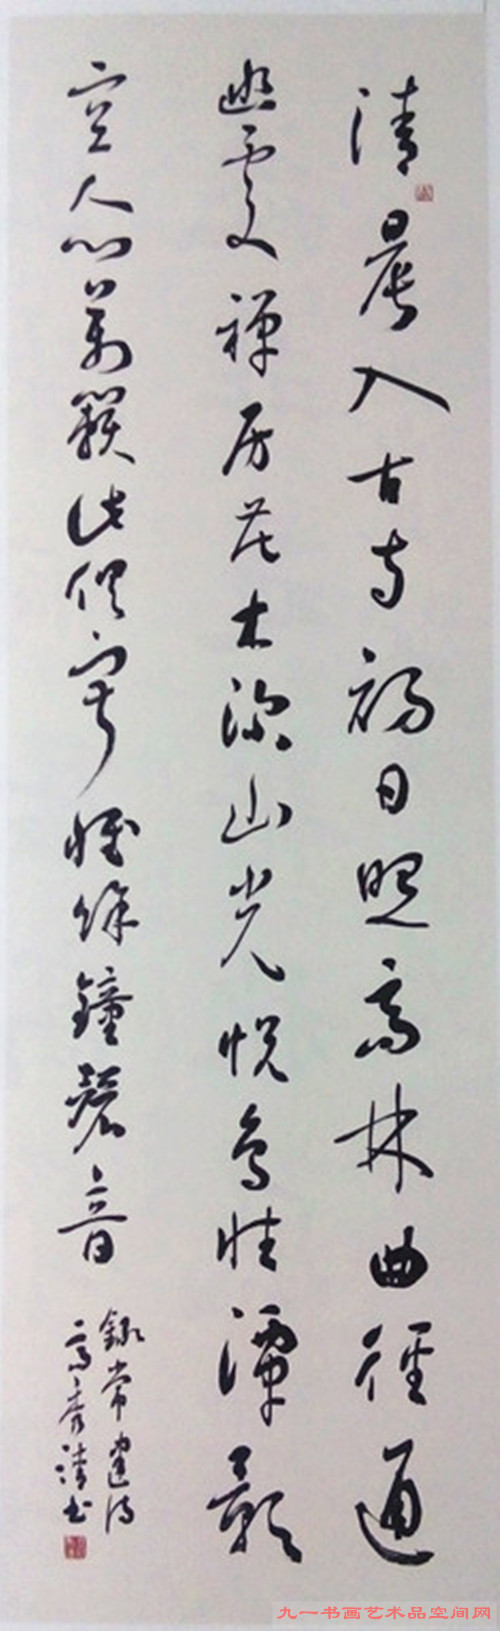 清晨入古寺初日照高林曲径通
幽处禅房花木深山光悦鸟性潭影
空人心万籁此俱寂惟馀鐘磬音
録常建诗
高秀清书
九一书画艺术品空间网